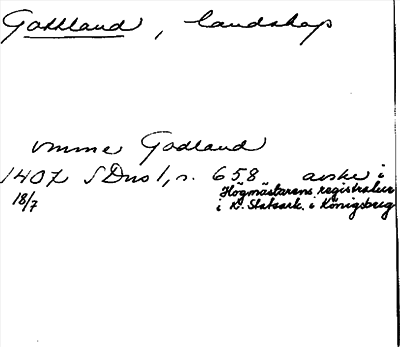 Gottland, landskap
vmme Godland
1407 SDns 1, s. 658 avskr i
18/7 Högmästarens registratur
i K. Statsark. i Königsberg